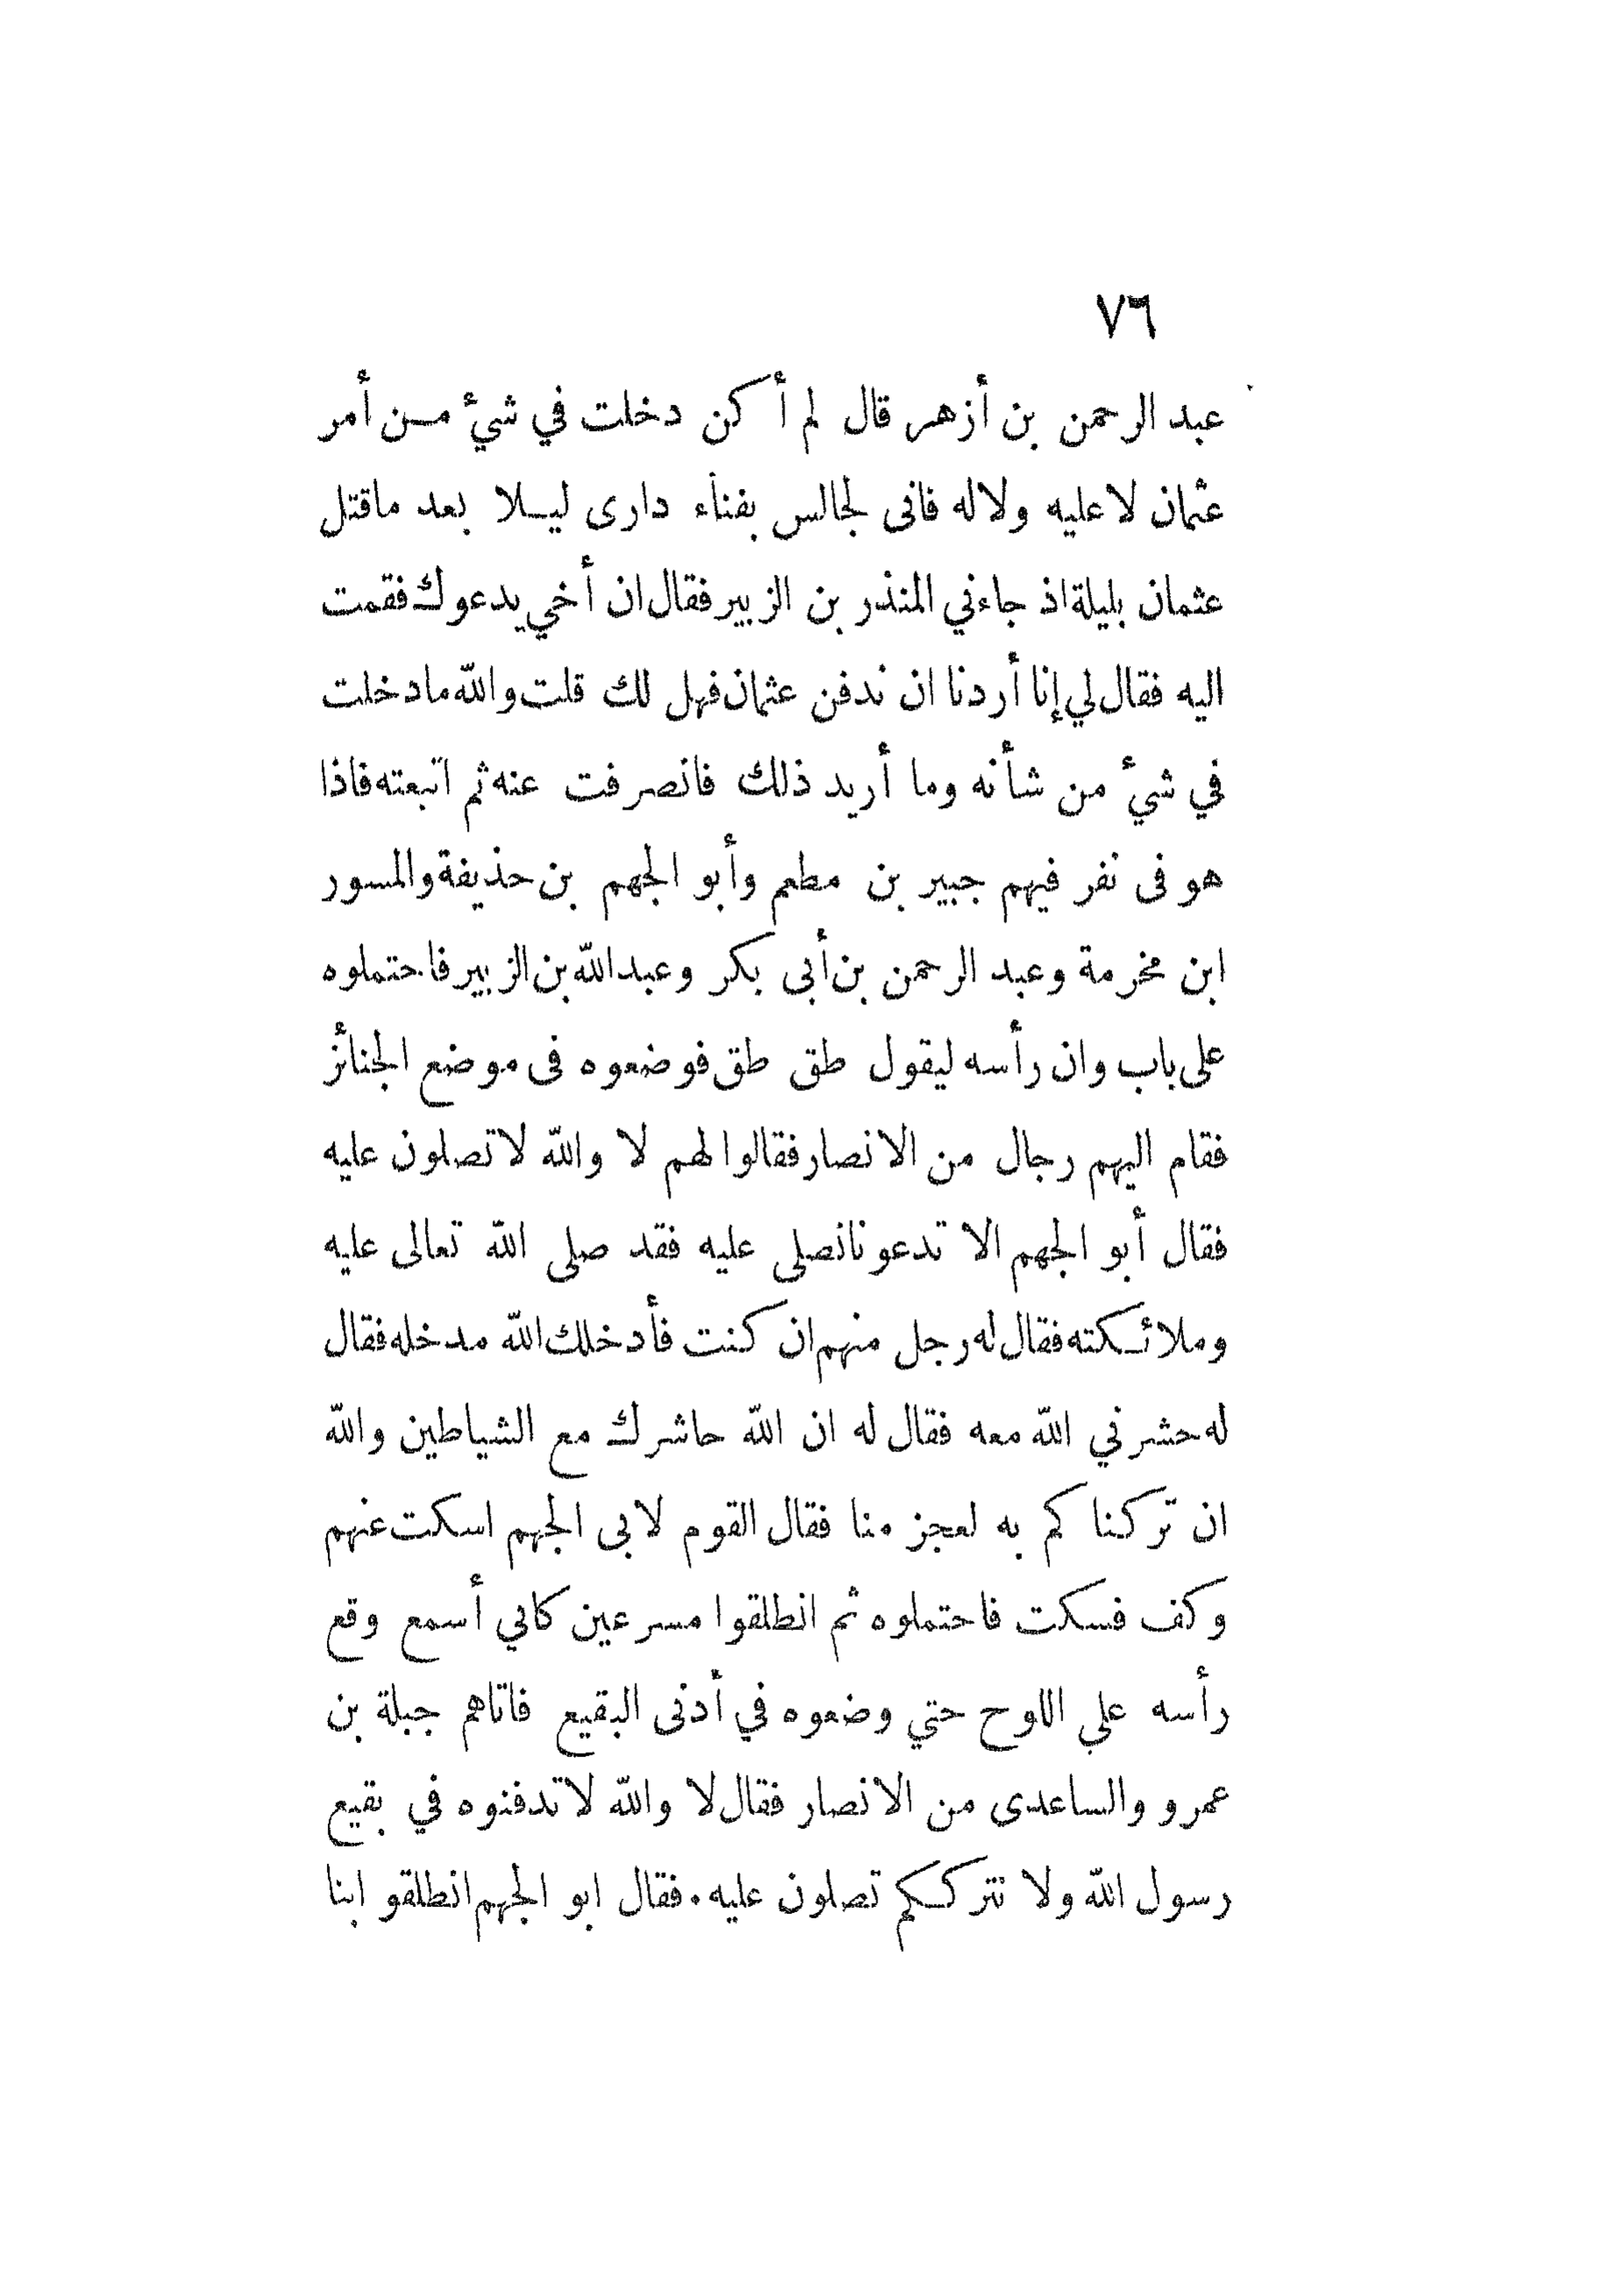 ٧٦
عبد الرحمن بن أزهر قال لم أكن دخلت في شئ من أمر
عثمان لا عليه ولا له فانى لجالس بفناء دارى ليلا بعد ماقتل
عثمان بليلة اذ جاءني المنذر بن الزبير فقال ان أخي يدعوك فقمت
اليه فقال لي إنا أردنا ان ندفن عثمان فهل لك قلت والله مادخلت
في شئ من شأنه وما أريد ذلك فانصرفت عنه ثم اتبعته فاذا
هو فى نفر فيهم جبير بن مطعم وأبو الجهم بن حذيفة والمسور
ابن مخرمة وعبد الرحمن بن أبى بكر وعبدالله بن الزبير فاحتملوه
على باب وان رأسه ليقول طق طق فوضعوه فى موضع الجنائز
فقام اليهم رجال من الانصار فقالوا لهم لا والله لا تصلون عليه
فقال أبو الجهم الا تدعونا نصلى عليه فقد صلى الله تعالى عليه
وملائكته فقال له رجل منهم ان كنت فأدخلك الله مدخله فقال
له حشرني الله معه فقال له ان الله حاشرك مع الشياطين والله
ان تركناكم به لعجز منا فقال القوم لابى الجهم اسكت عنهم
وكف فسكت فاحتملوه ثم انطلقوا مسرعين كاني أسمع وقع
رأسه علي اللوح حتي وضعوه في أدنى البقيع فاتاهم جبلة بن
عمرو والساعدى من الانصار فقال لا والله لا تدفنوه في بقيع
رسول الله ولا نترككم تصلون عليه. فقال ابو الجهم انطلقو ابنا